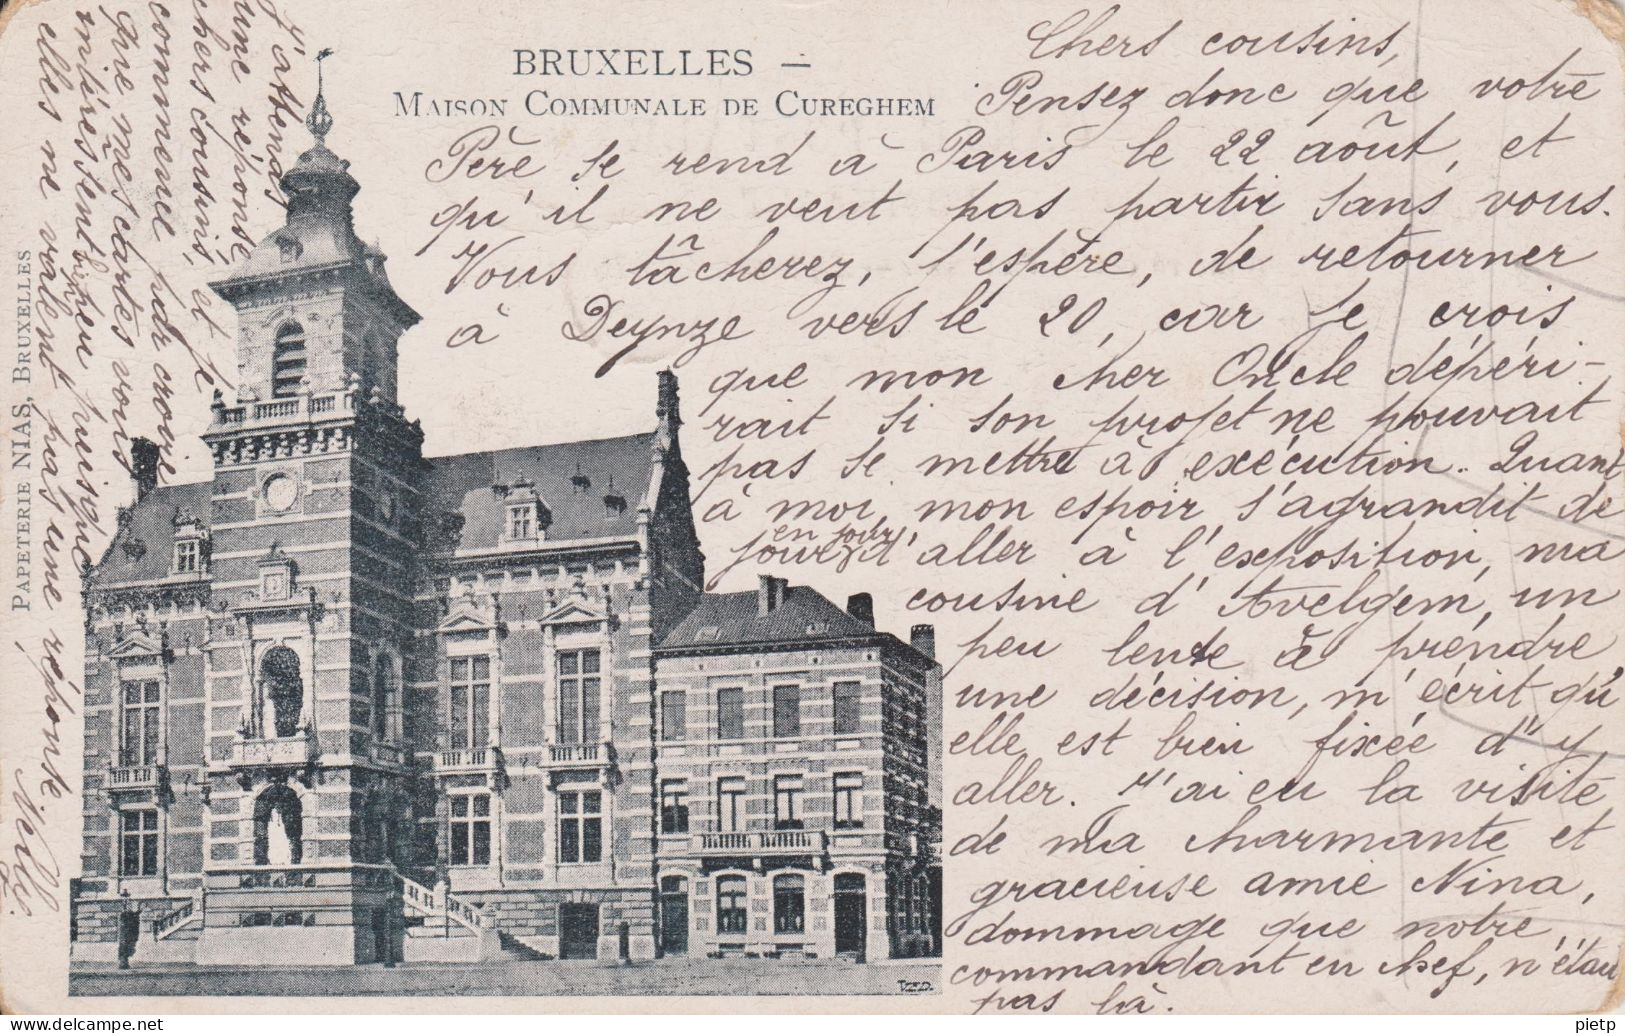 BRUXELLES –
MAISON COMMUNALE DE CUREGHEM
Chers cousins,
Pensez donc que votre
Père se rend à Paris le 22 août, et
qu'il ne veut pas partir sans vous.
Vous tâcherez, j'espère, de retourner
à Deynze vers le 20, car je crois
que mon cher Oncle dépéri-
rait si son projet ne pouvait
pas se mettre à exécution. Quant
à moi, mon espoir s'agrandit de
jour en jour d'aller à l'exposition, ma
cousine d'Avelgem, un
peu lente à prendre
une décision, m'écrit qu'
elle est bien fixée d'y
aller. J'ai eu la visite
de ma charmante et
gracieuse amie Nina,
dommage que notre
commandant en chef, n'était
pas là.
J'attends
une réponse
chers cousins, et je
commence par croire
que mes cartes vous
intéressent bien peu puisque
elles ne valent pas une réponse
Nelly.
PAPETERIE NIAS, BRUXELLES
pietp